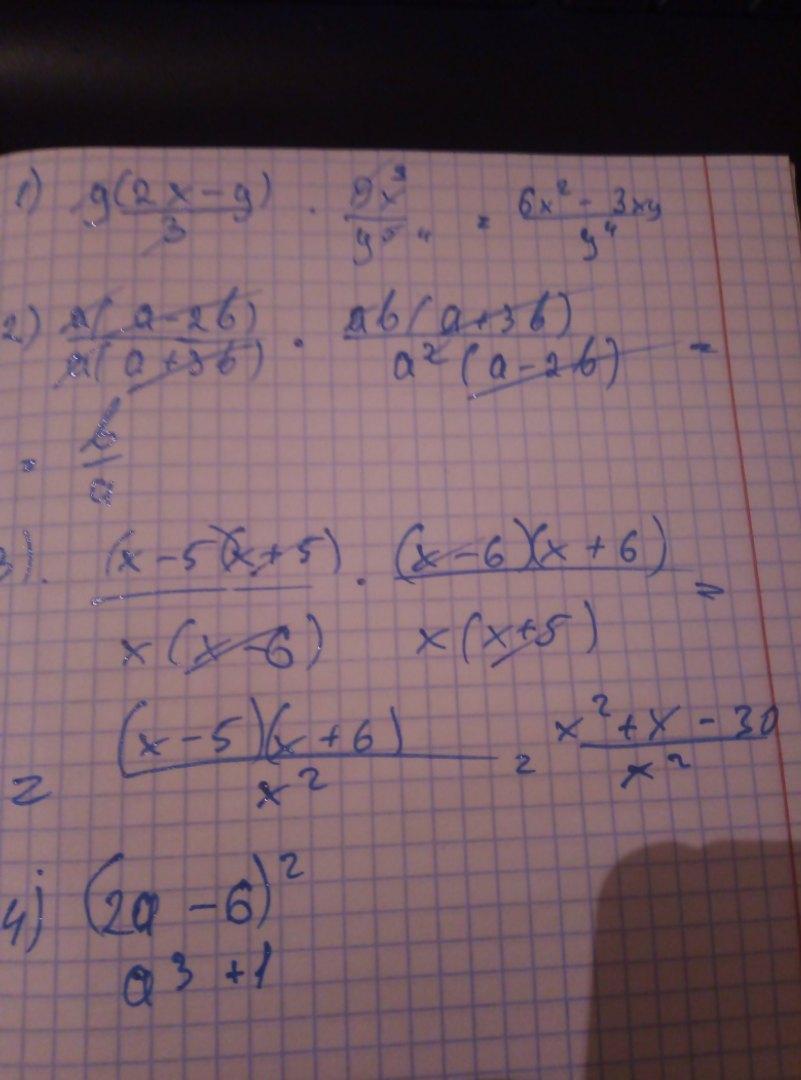 1) y(2x-y)/3 · 9x³/y⁵ ⁴ = 6x²-3xy/y⁴
2) a(a-2b)/a(a+3b) · ab(a+3b)/a²(a-2b) =
= b/a
3). (x-5)(x+5)/x(x-6) · (x-6)(x+6)/x(x+5) =
= (x-5)(x+6)/x² = x²+x-30/x²
4) (2a-6)²
a³+1